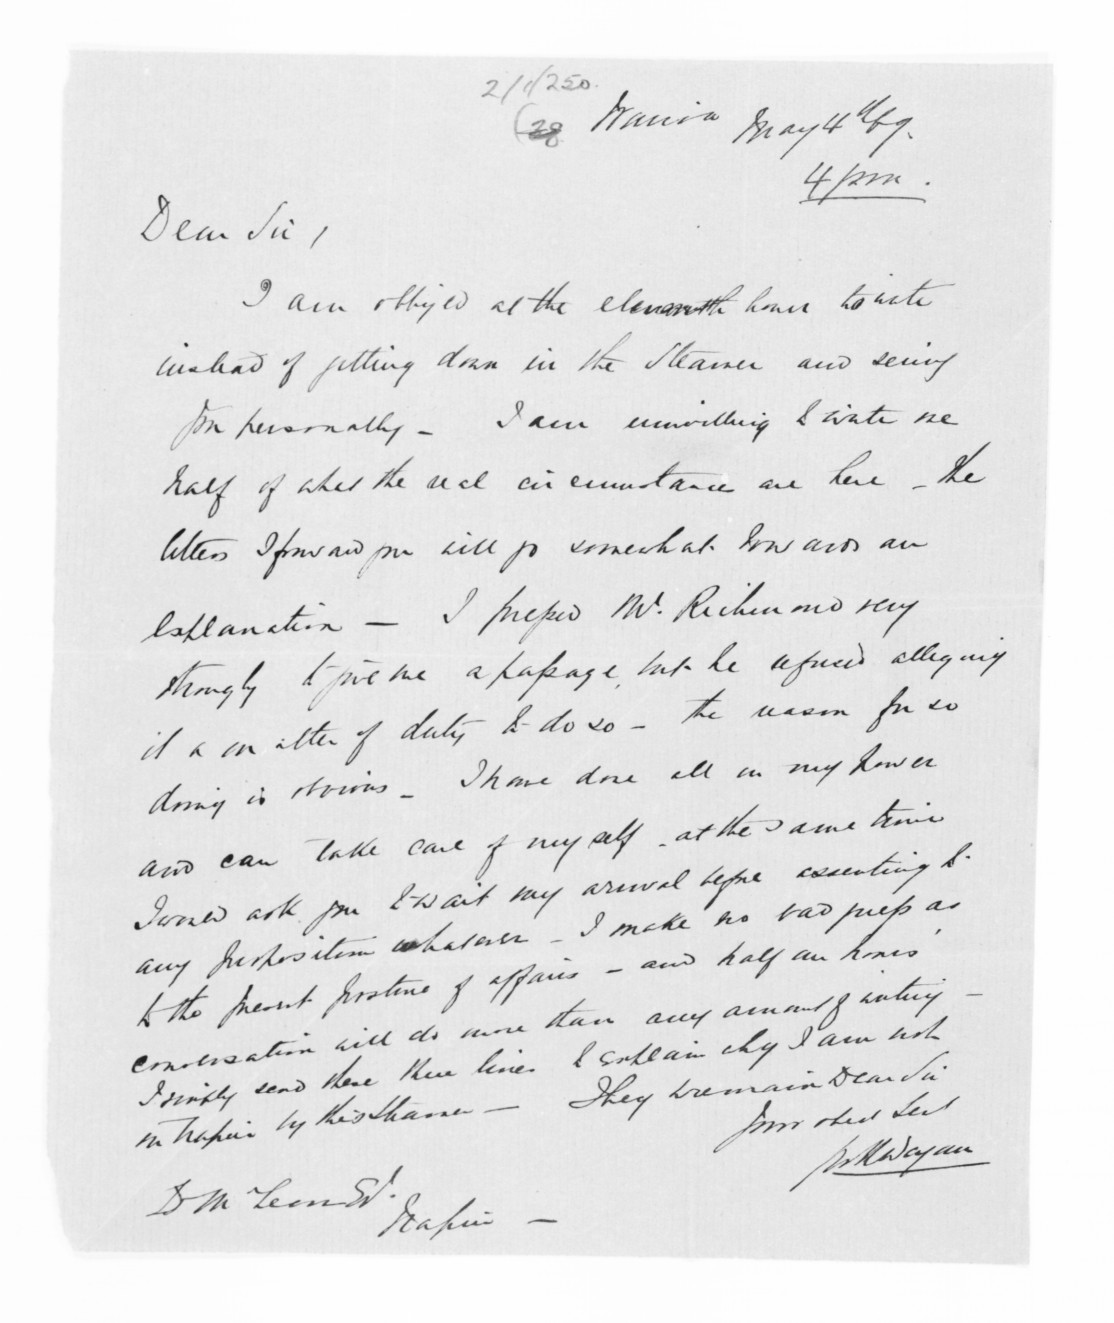 2/1/250.
(28
Wairoa May 4th 69.
4 pm.
Dear Sir,
I am obliged at the eleventh hour to write
instead of getting down in the Steamer and seeing
you personally – I am unwilling to write one
half of what the real circumstances are here – the
letters I forward you will go somewhat towards an
explanation – I pressed Mr. Richmond very
strongly to give me a passage, but he refused alleging
it a matter of duty to do so – the reason for so
doing is obvious – I have done all in my power
and can take care of myself – at the same time
I would ask you to wait my arrival before assenting to
any proposition whatever – I make no bad guess as
to the present posture of affairs – and half an hours'
conversation will do more than any amount of writing –
I simply send these three lines to explain why I am not
in Napier by this Steamer – I beg to remain Dear Sir
Your obed Servt
D McLean Esq.
Napier –